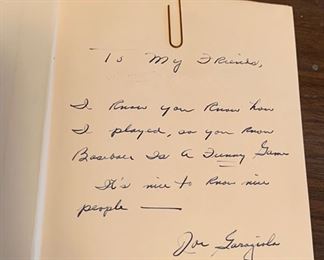 To My Friends,
I know you know how
I played, so you know
Baseball Is A Funny Game
It's nice to know nice
people —
Joe Garagiola